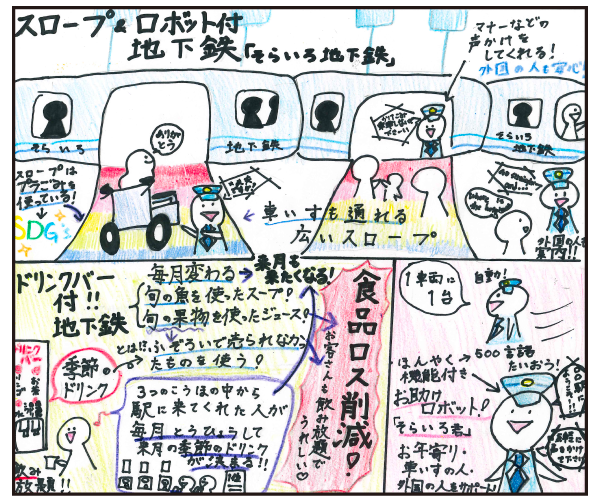 スロープ&ロボット付
地下鉄「そらいろ地下鉄」
マナーなどの
声かけを
してくれる!
外国の人も安心!
そらいろ
地下鉄
そらいろ
地下鉄
ありが
とう
スロープは
プラごみを
使っている!
SDG's
車いすも通れる
広いスロープ
外国の人も
案内!!
ドリンクバー
付!!
地下鉄
毎月変わる→来月も
来たくなる!
旬の魚を使ったスープ!
旬の果物を使ったジュース!
とはにふぞろいで売られなかっ
たものを使う!
季節の
ドリンク
3つのこうほの中から
駅に来てくれた人が
毎月とうひょうして
来月の季節のドリンク
が決まる!!
食品ロス削減!
お客さんも飲み放題で
うれしい♡
飲み
放題!!
1車両に
1台
自動!
ほんやく→500言語
機能付き たいおう!
お助け
ロボット!
「そらいろ君」
お年寄り・
車いすの人・
外国の人をサポート!